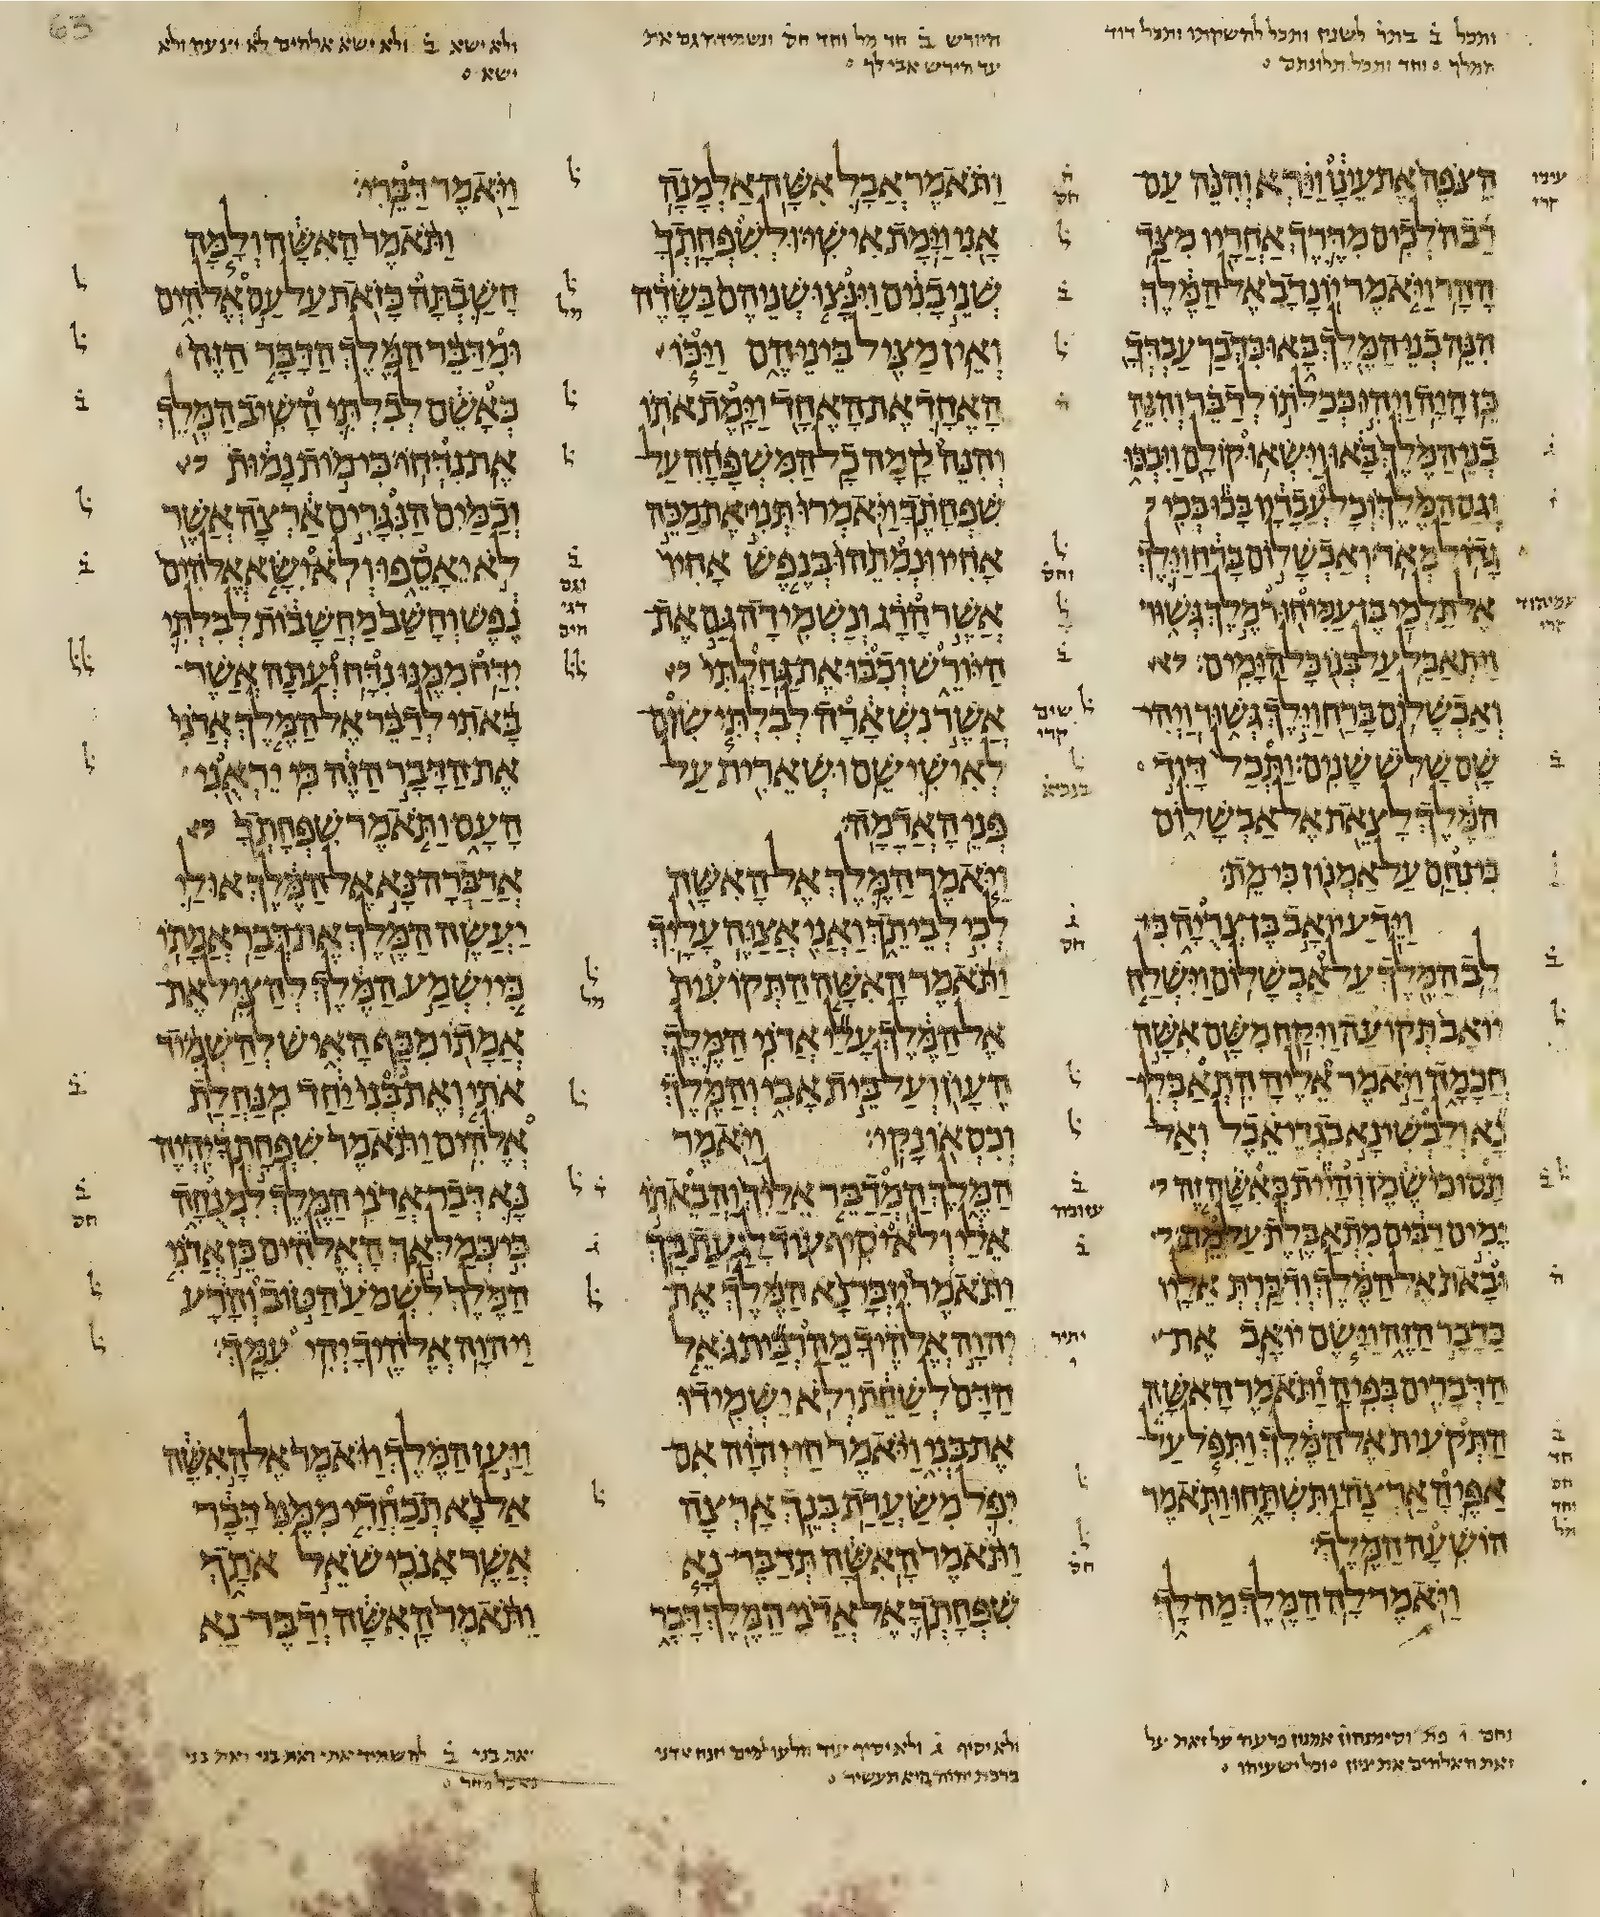 ותכל ב בתר לשנין ותכל להשקתו ותכל דוד
המלך וחד ותכל תלונתם
הצפה את עינו וירא והנה עם
רב הלכים מדרך אחריו מצד
ההר ויאמר יונדב אל המלך
הנה בני המלך באו כדבר עבדך
כן היה ויהי ככלתו לדבר והנה
בני המלך באו וישאו קולם ויבכו
וגם המלך וכל עבדיו בכו בכי
גדול מאד ואבשלום ברח וילך
אל תלמי בן עמיחור מלך גשור
ויתאבל על בנו כל הימים
ואבשלום ברח וילך גשור ויהי
שם שלש שנים ותכל דוד
המלך לצאת אל אבשלום
כי נחם על אמנון כי מת
וידע יואב בן צריה כי
לב המלך על אבשלום וישלח
יואב תקועה ויקח משם אשה
חכמה ויאמר אליה התאבלי
נא ולבשי נא בגדי אבל ואל
תסוכי שמן והיית כאשה זה
ימים רבים מתאבלת על מת
ובאת אל המלך ודברת אליו
כדבר הזה וישם יואב את
הדברים בפיה ותאמר האשה
התקעית אל המלך ותפל על
אפיה ארצה ותשתחו ותאמר
הושעה המלך
ויאמר לה המלך מה לך
נחם ו פת וסימנהון אמנון פרעה על זאת על
זאת האלהים את ציון וכל ישעיהו
היורש ב חד מל וחד חס ונשמידה גם את
עד הירש אבי לך
ותאמר אבל אשה אלמנה
אני וימת אישי ולשפחתך
שני בנים וינצו שניהם בשדה
ואין מציל ביניהם ויכו
האחד את האחד וימת אתו
והנה קמה כל המשפחה על
שפחתך ויאמרו תני את מכה
אחיו ונמתהו בנפש אחיו
אשר הרג ונשמידה גם את
היורש וכבו את גחלתי
אשר נשארה לבלתי שום
לאישי שם ושארית על
פני האדמה
ויאמר המלך אל האשה
לכי לביתך ואני אצוה עליך
ותאמר האשה התקועית
אל המלך עלי אדני המלך
העון ועל בית אבי והמלך
וכסאו נקי ויאמר
המלך המדבר אליך והבאתו
אלי ולא יסיף עוד לגעת בך
ותאמר יזכר נא המלך את
יהוה אלהיך מהרבית גאל
הדם לשחת ולא ישמידו
את בני ויאמר חי יהוה אם
יפל משערת בנך ארצה
ותאמר האשה תדבר נא
שפחתך אל אדני המלך דבר
ברכת יהוה היא תעשיר
ולא ישא ב ולא ישא אלהים לא יגעת ולא
ישא
ויאמר דברי
ותאמר האשה ולמה
חשבתה כזאת על עם אלהים
ומדבר המלך הדבר הזה
כאשם לבלתי השיב המלך
את נדחו כי מות נמות
וכמים הנגרים ארצה אשר
לא יאספו ולא ישא אלהים
נפש וחשב מחשבות לבלתי
ידח ממנו נדח ועתה אשר
באתי לדבר אל המלך אדני
את הדבר הזה כי יראני
העם ותאמר שפחתך
אדברה נא אל המלך אולי
יעשה המלך את דבר אמתו
כי ישמע המלך להציל את
אמתו מכף האיש להשמיד
אתי ואת בני יחד מנחלת
אלהים ותאמר שפחתך יהיה
נא דבר אדני המלך למנחה
כי כמלאך האלהים כן אדני
המלך לשמע הטוב והרע
ויהוה אלהיך יהי עמך
ויען המלך ויאמר אל האשה
אל נא תכחדי ממני דבר
אשר אנכי שאל אתך
ותאמר האשה ידבר נא
ואת בני ב להשמיד אתי ואת בני ואת בני